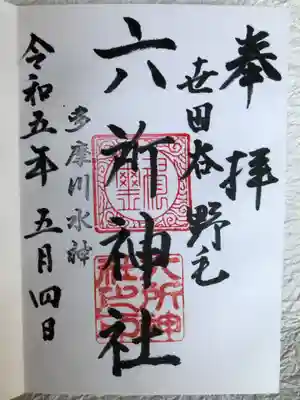 奉拝
世田谷野毛
六所神社
多摩川水神
令和五年 五月四日
六所神社之印